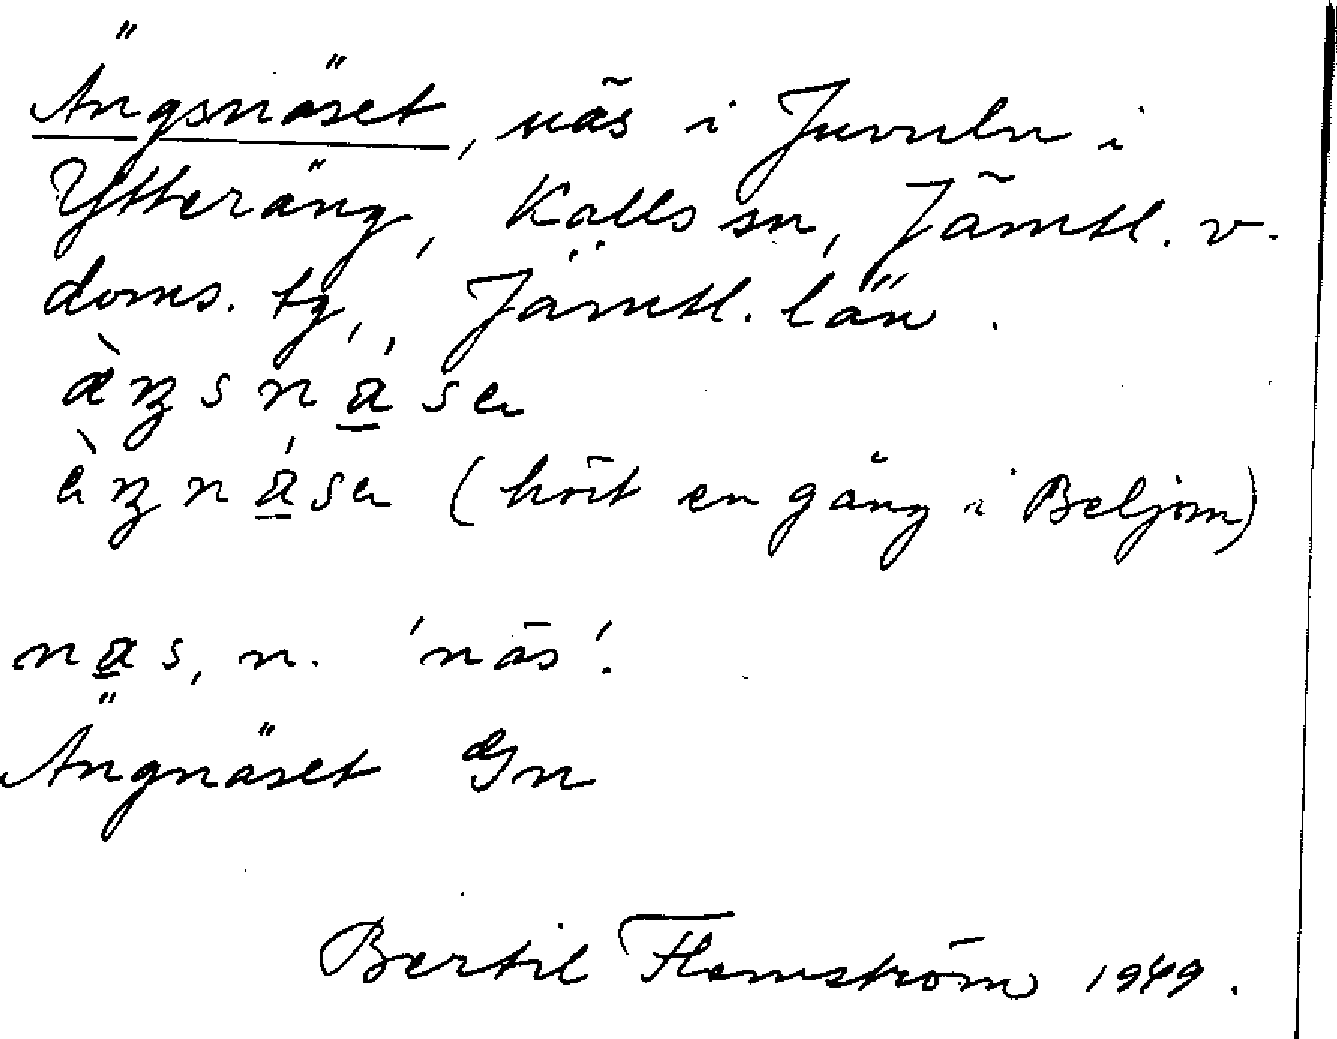 Ängsnäset, näs i Juvuln i
Ytteräng, Kalls sn, Jämtl. v.
doms. tg, Jämtl. län.
(hört en gång i Beljom)
nas, n. 'näs'.
Ängnäset Gn
Bertil Flemström 1949.